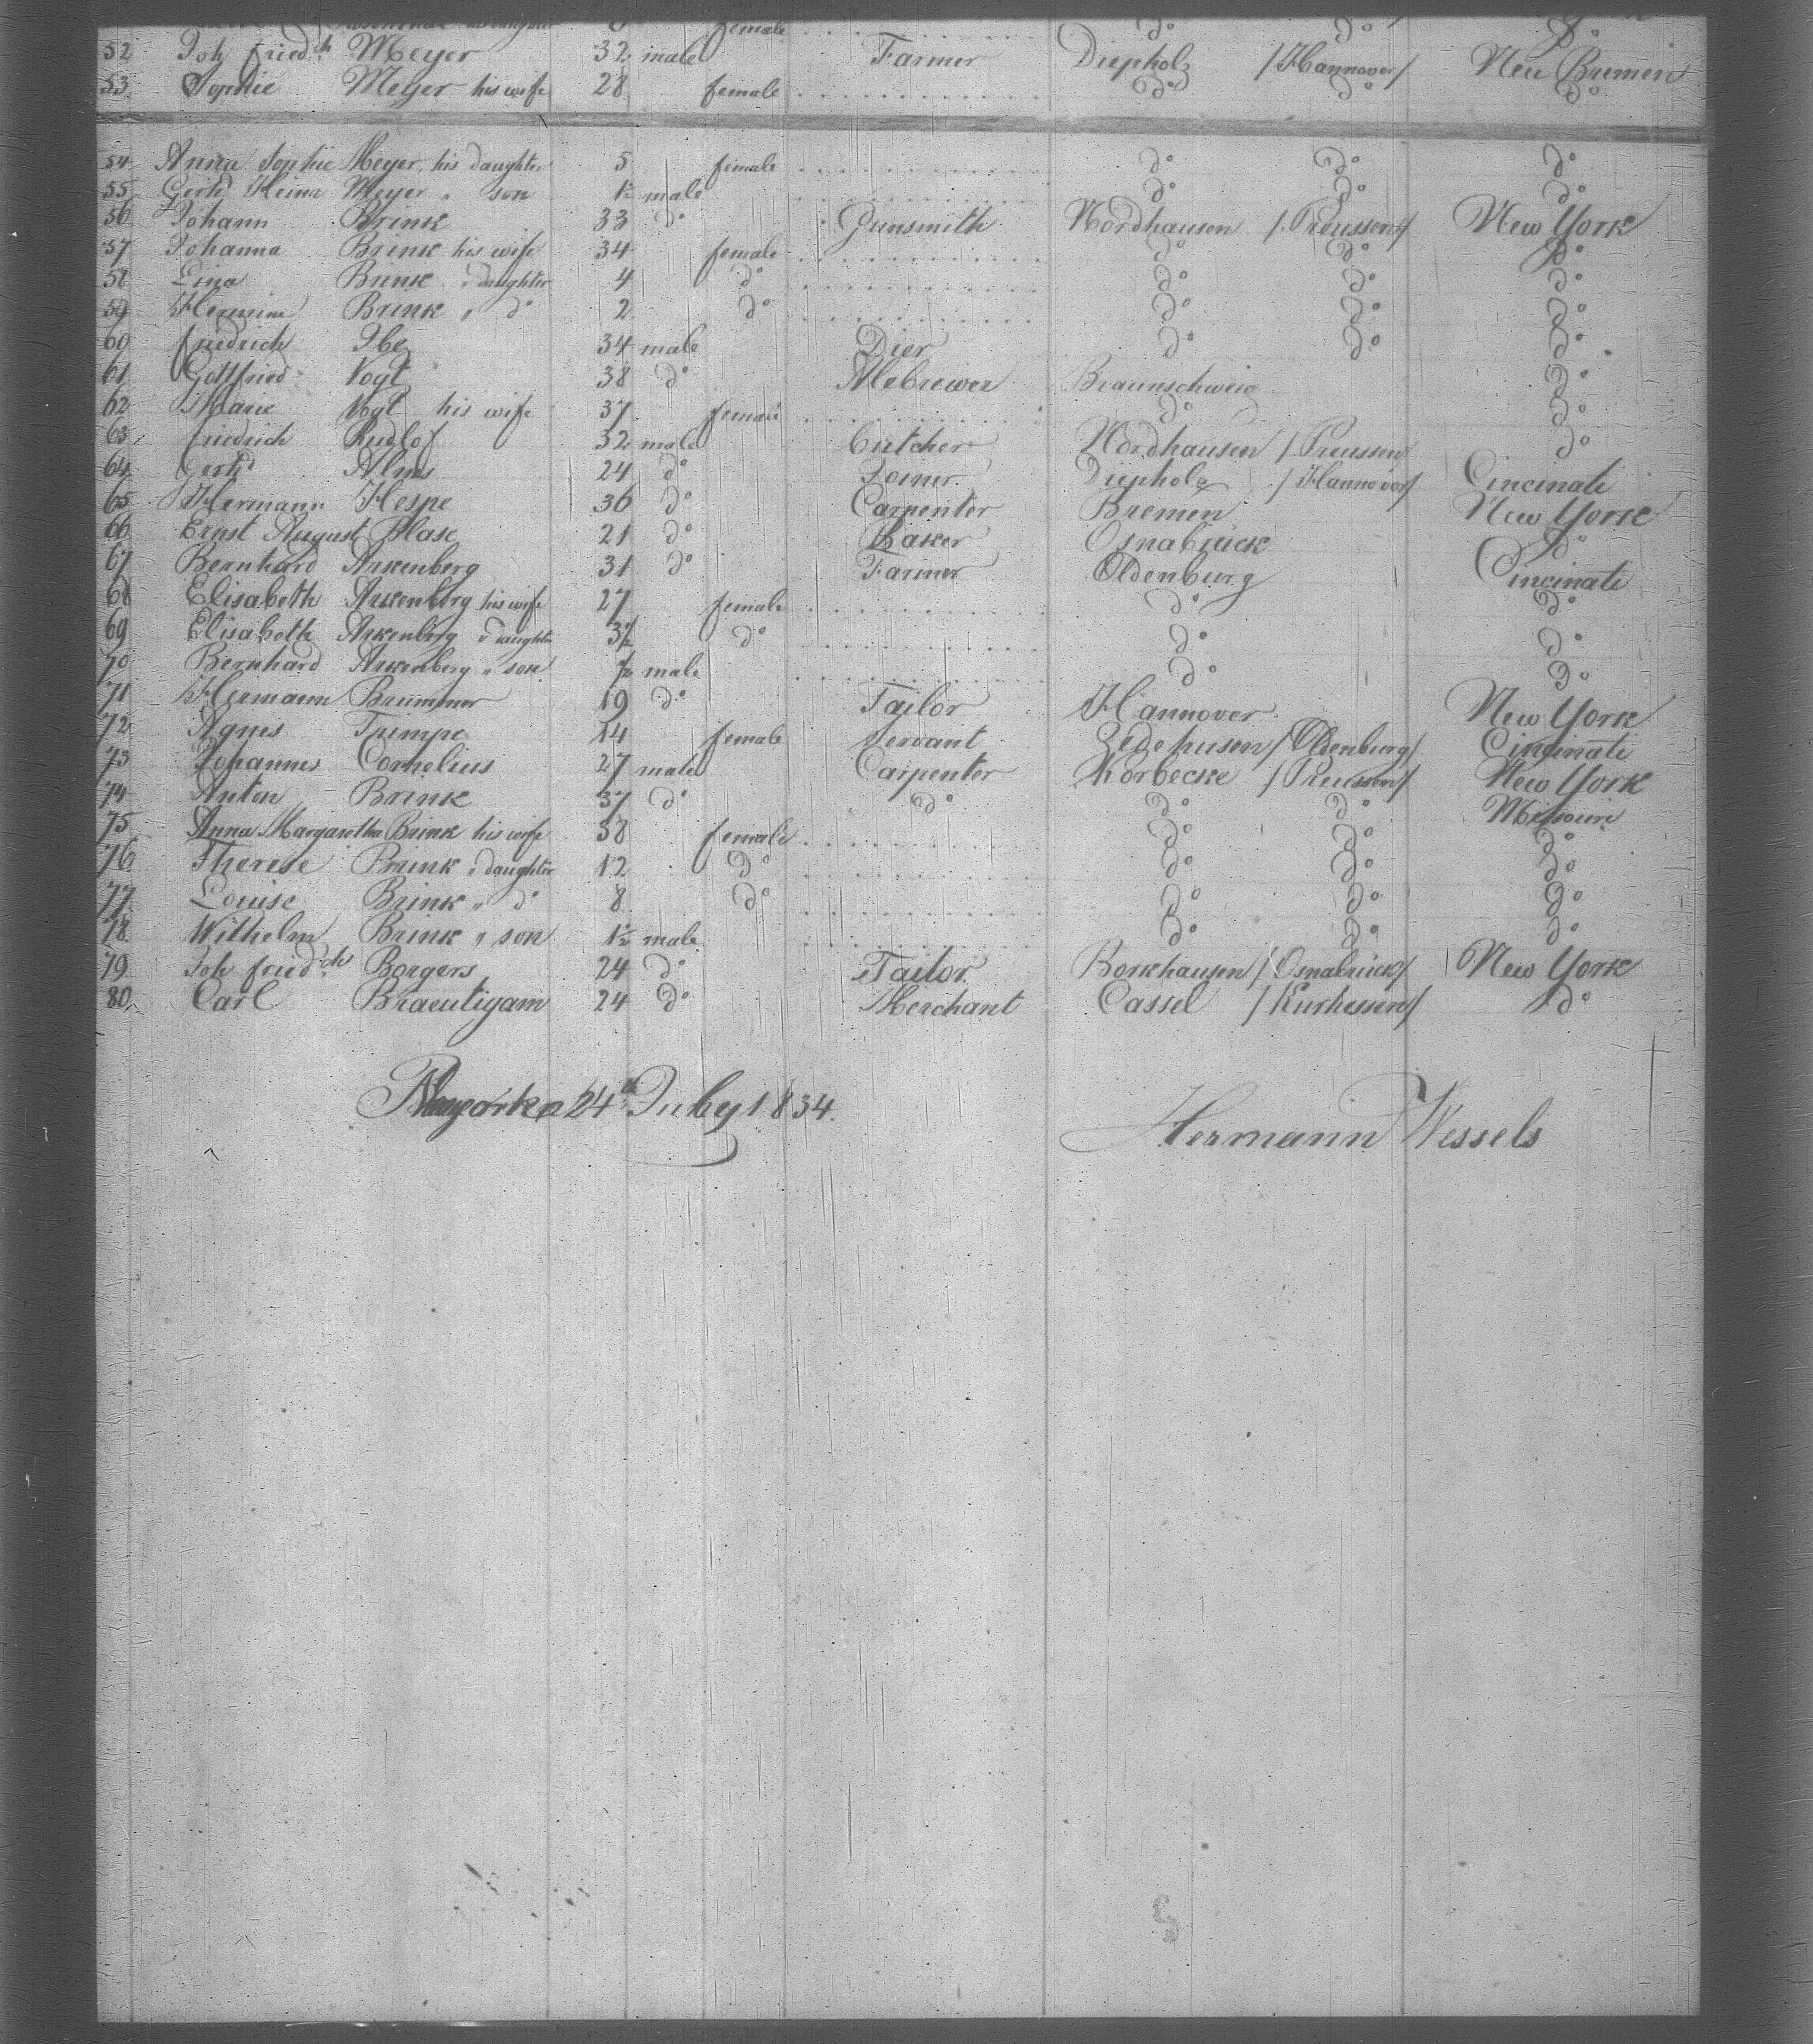 female do do do
52 Joh friedch Meyer 32 male Farmer Diepholz /Hannover/ New Bremen
53 Sophie Meyer his wife 28 female do do do
54 Anna Sophie Meyer, his daughter 5 female do do do
55 Gerhd Heinr Meyer " son 1½ male do do do
56 Johann Brink 33 do Gunsmith Nordhausen /Preussen/ New York
57 Johanna Brink his wife 34 female do do do
58 Lina Brink " daughter 4 do do do do
59 Hermine Brink " do 2 do do do do
60 friedrich Ibe 34 male Dier do do do
61 Gottfried Vogt 38 do Alebrewer Braunschweig do
62 Marie Vogt his wife 37 female do do
63 friedrich Rudlof 32 male butcher Nordhausen /Preussen do
64 Gerhd Alms 24 do Joiner Diepholz /Hannover/ Cincinati
65 Hermann Hespe 36 do Carpenter Bremen New York
66 Ernst August Blase 21 do Baker Osnabrück do
67 Bernhard Arkenberg 31 do Farmer Oldenburg Cincinati
68 Elisabeth Arkenberg his wife 27 female do do
69 Elisabeth Arkenberg " daughter 3½ do do do
70 Bernhard Arkenberg " son ½ male do do
71 Hermann Brümmer 19 do Tailor Hannover New York
72 Agnes Trimpe 14 female Servant /Oldenburg/ Cincinati
73 Johannes Cornelius 27 male Carpenter Körbecke /Preussen/ New York
74 Anton Brink 37 do do do do Missouri
75 Anna Margaretha Brink his wife 38 female do do do
76 Therese Brink " daughter 12 do do do do
77 Louise Brink " do 8 do do do do
78 Wilhelm Brink " son 1½ male do do do
79 Joh friedch Borgers 24 do Tailor Borkhausen /Osnabrück/ New York
80 Carl Braeutigam 24 do Merchant Cassel /Kurhessen/ do
24th July 1834.
Hermann Wessels